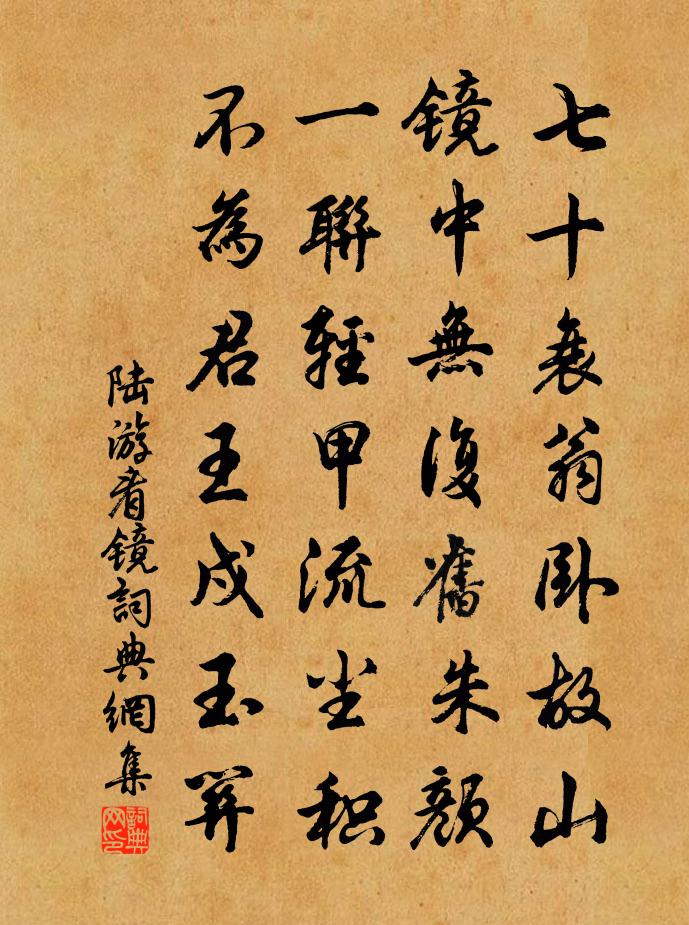 七十衰翁卧故山
镜中無復舊朱颜
一聯輕甲流塵积
不為君王戍玉關
陆游看镜詞典網集
詞典网印